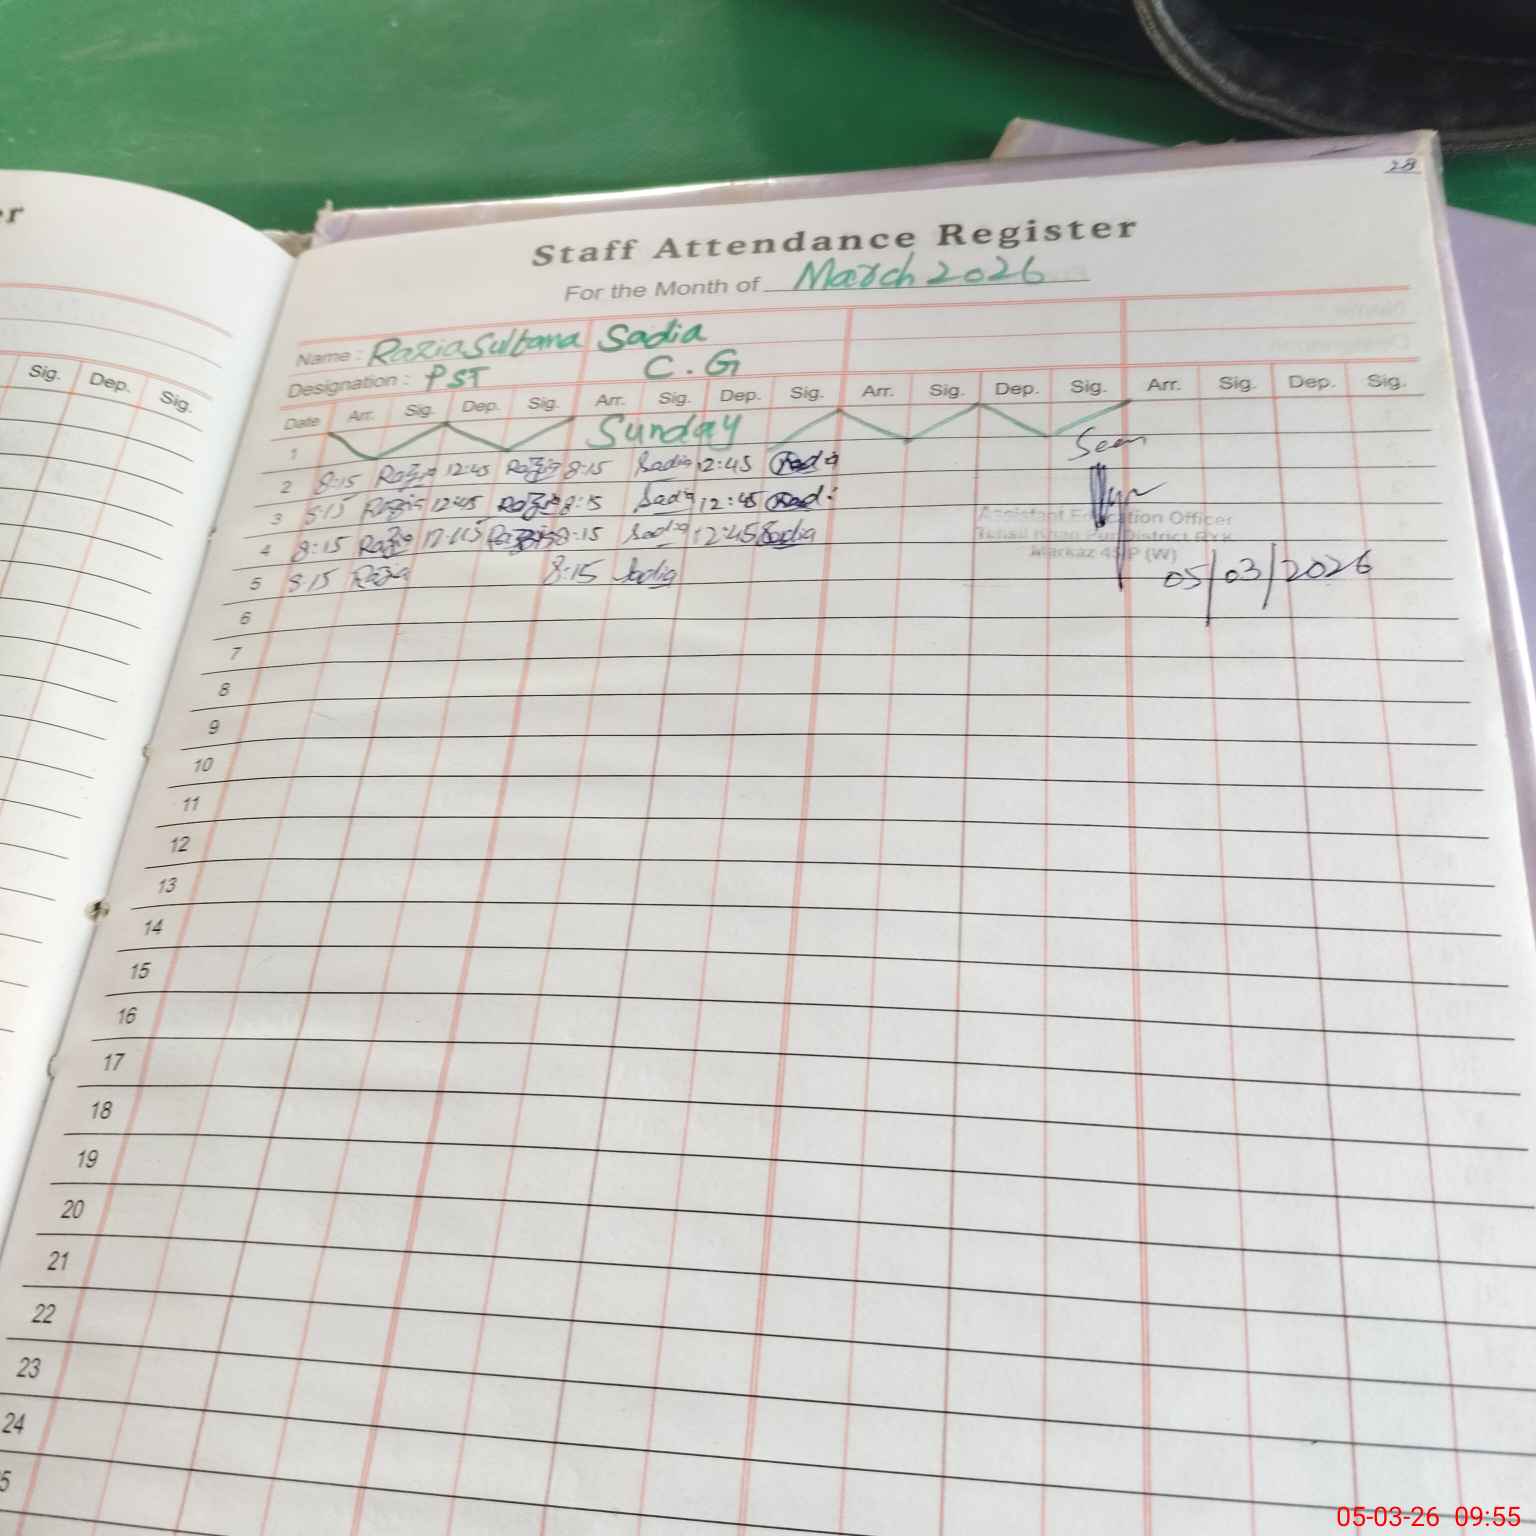 er
Sig. Dep. Sig.
28
Staff Attendance Register
For the Month of March 2026
Name : Razia Sultana Sadia
Designation : PST C.G
Date Arr. Sig. Dep. Sig. Arr. Sig. Dep. Sig. Arr. Sig. Dep. Sig. Arr. Sig. Dep. Sig.
1 Sunday
Seen
2 8:15 Razia 12:45 Razia 8:15 Sadia 12:45 Sadia
3 8:15 Razia 12:45 Razia 8:15 Sadia 12:45 Sadia
4 8:15 Razia 12:45 Razia 8:15 Sadia 12:45 Sadia
Assistant Education Officer
Tehsil Khan Pur District RYK
Markaz 45/P (W)
5 8:15 Razia 8:15 Sadia
05/03/2026
6
7
8
9
10
11
12
13
14
15
16
17
18
19
20
21
22
23
24
5
05-03-26 09:55